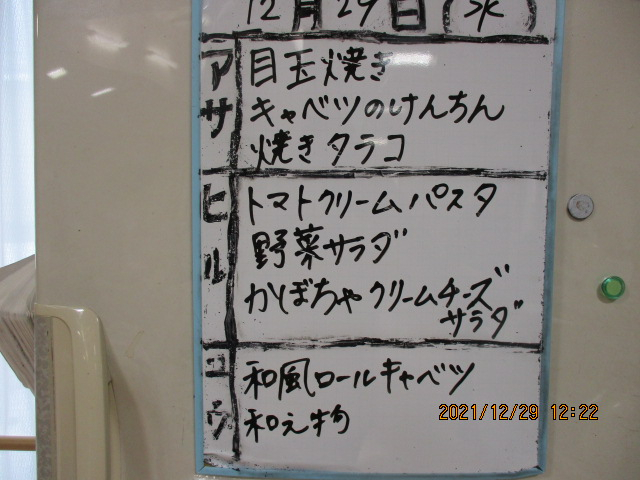 12月29日(水)
アサ
目玉焼き
キャベツのけんちん
焼きタラコ
ヒル
トマトクリームパスタ
野菜サラダ
かぼちゃクリームチーズ
サラダ
ユウ
和風ロールキャベツ
和え物
2021/12/29 12:22